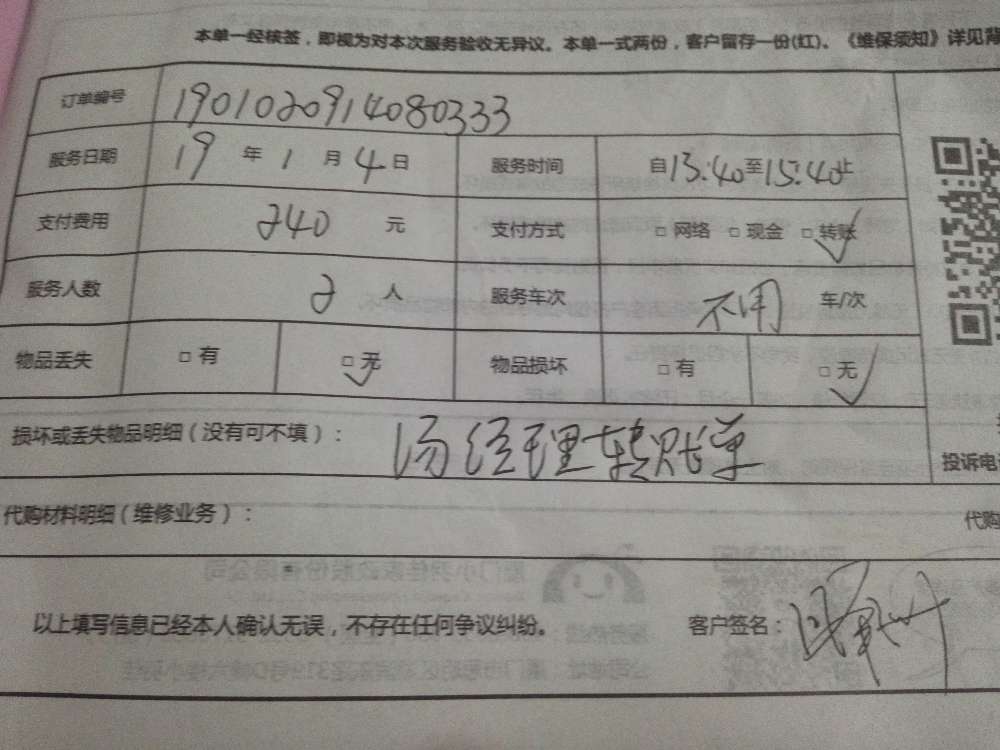 本单一经核签，即视为对本次服务验收无异议。本单一式两份，客户留存一份(红)。《维保须知》详见背
订单编号 1901020914080333
服务日期 19 年 1 月 4 日 服务时间 自 13:40 至 15:40 止
支付费用 240 元 支付方式 □ 网络 □ 现金 □ 转账
服务人数 2 人 服务车次 不用 车/次
物品丢失 □ 有 □ 无 物品损坏 □ 有 □ 无
损坏或丢失物品明细（没有可不填）： 汤经理转账单
投诉电
代购材料明细（维修业务）： 代购
以上填写信息已经本人确认无误，不存在任何争议纠纷。 客户签名：